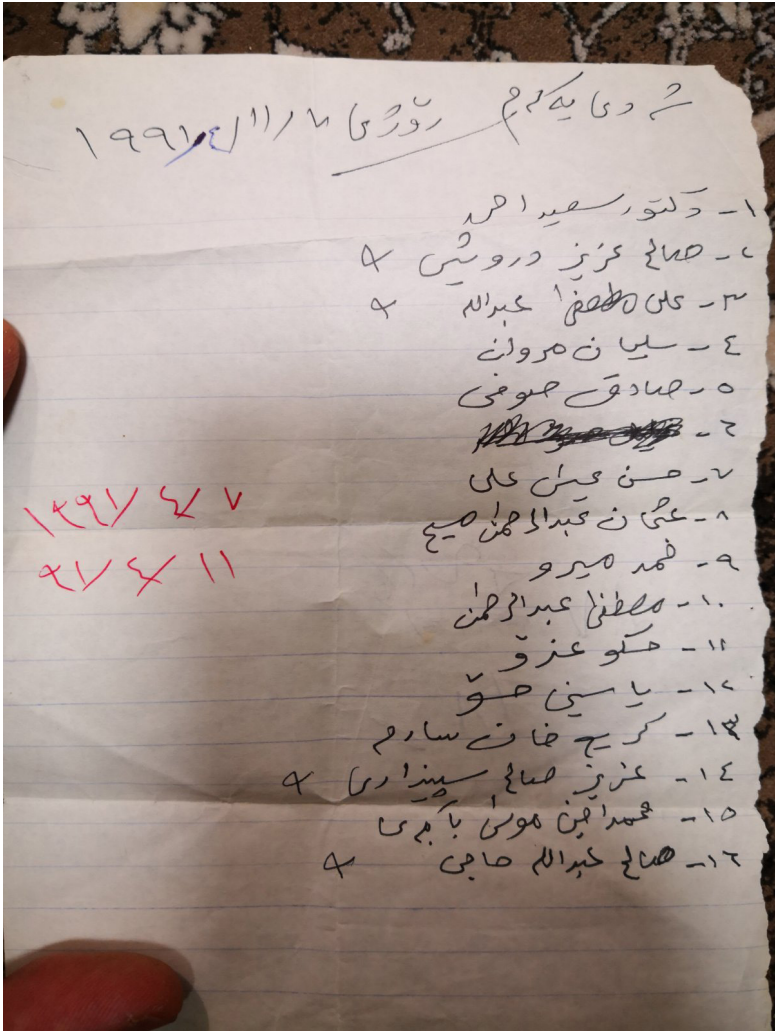 شه‌ وى يه‌كه‌م رۆژى ١١/٧/٤/١٩٩١
١- دكتور سعيد احمد
٢- صالح عزيز دروێش ×
٣- على مصطفى عبدالله ×
٤- سليمان مروان
٥- صادق صوفى
٦-
٧- حسن عيسى على
٨- عثمان عبدالرحمن مسيح
٩- ميرو
١٠- مصطفى عبدالرحمن
١١- حسكو عزۆ
١٢- ياسين حسۆ
١٣- كريم خان سارم
١٤- عزيز صالح سپيندارى ×
١٥- محمدامين موسى
١٦- صالح عبدالله حاجى ×
١٩٩١/٤/٧
٩١/٤/١١